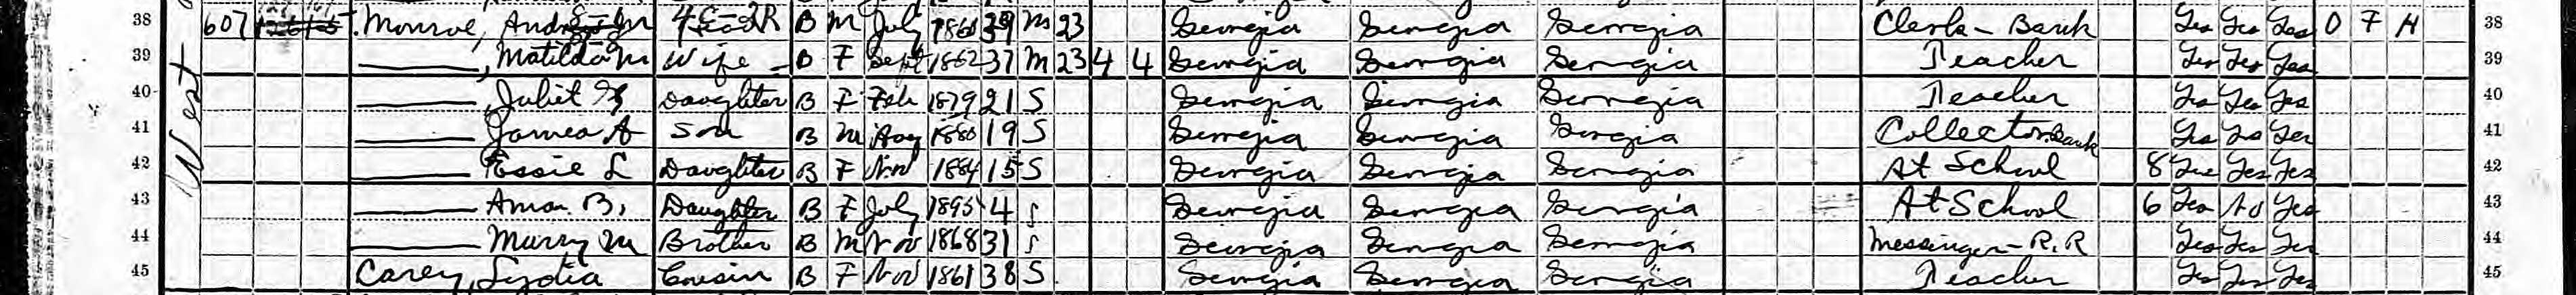 West
38 607 Monroe, B M July 1860 39 M 23 Georgia Georgia Georgia Clerk - Bank Yes Yes Yes O F H 38
39 ———, Matilda M Wife B F Sept 1862 37 M 23 4 4 Georgia Georgia Georgia Teacher Yes Yes Yes 39
40 ———, Juliet Daughter B F Feb 1879 21 S Georgia Georgia Georgia Teacher Yes Yes Yes 40
41 ——— James A Son B M Aug 1880 19 S Georgia Georgia Georgia Collector Bank Yes Yes Yes 41
42 ——— Essie L Daughter B F Nov 1884 15 S Georgia Georgia Georgia At School 8 Yes Yes Yes 42
43 ——— B. Daughter B F July 1895 4 S Georgia Georgia Georgia At School 6 Yes No Yes 43
44 ——— Murry M Brother B M Nov 1868 31 S Georgia Georgia Georgia Messinger - R.R Yes Yes Yes 44
45 Carey, Lydia Cousin B F Nov 1861 38 S Georgia Georgia Georgia Teacher Yes Yes Yes 45